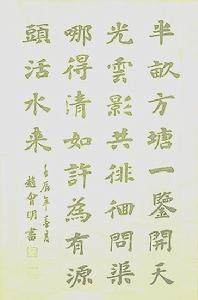 半畝方塘一鑒開天
光雲影共徘徊問渠
哪得清如許為有源
頭活水来
壬辰年春月
趙會明書